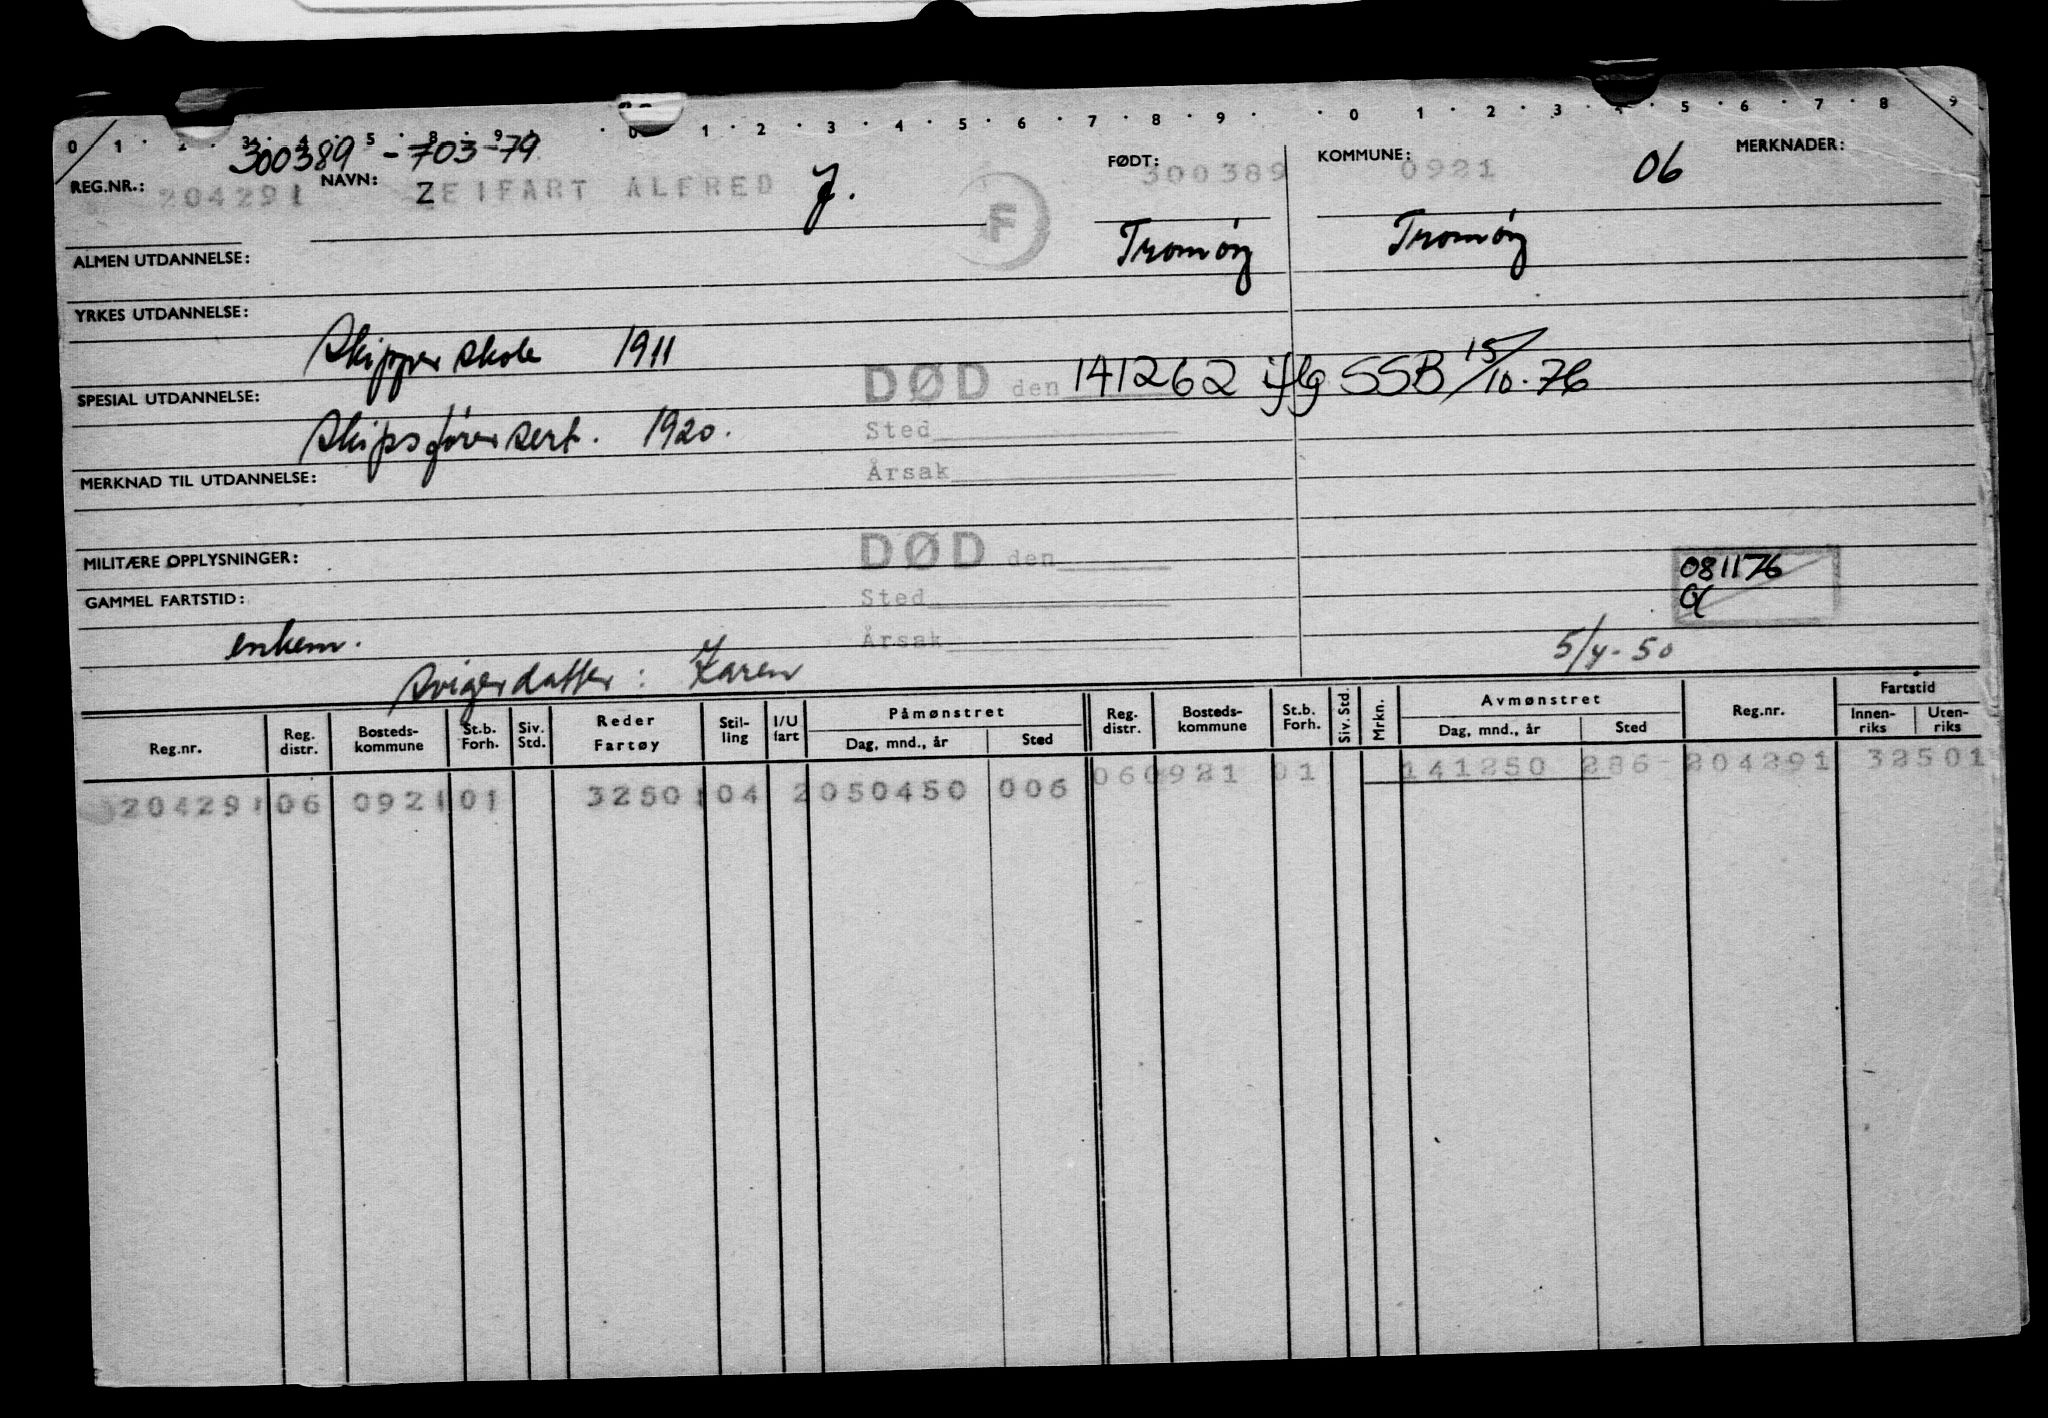 0 1 · 2 3 · 4 · 5 · 8 · 9 · · 0 1 · 2 · 3 · 4 · 5 · 6 · 7 · 8 · 9 · · 0 · 1 · 2 · 3 · 4 · 5 · 6 · 7 · 8 · 9
300389 - 703-79
REG.NR.: 204291 NAVN: Z ZEIFART ALFRED J. F FØDT: 300389 KOMMUNE: 0921 06 MERKNADER:
ALMEN UTDANNELSE: Tromøy Tromøy
YRKES UTDANNELSE:
Skipperskole 1911
SPESIAL UTDANNELSE: DØD den 141262 iflg SSB 15/10-76
Skipsførersert. 1920. Sted
MERKNAD TIL UTDANNELSE: Årsak
MILITÆRE OPPLYSNINGER: DØD den 081176
GAMMEL FARTSTID: Sted
enkem. Årsak 5/4-50
svigerdatter: Karen
Reg.nr. Reg. distr. Bosteds-kommune St.b. Forh. Siv. Std. Reder Fartøy Stil-ling I/U fart Påmønstret Dag, mnd., år Sted Reg. distr. Bosteds-kommune St.b. Forh. Siv. Std. Mrkn. Avmønstret Dag, mnd., år Sted Reg.nr. Fartstid Innen-riks Uten-riks
204291 06 0921 01 32501 04 2 050450 006 06 0921 01 141250 286- 204291 32501